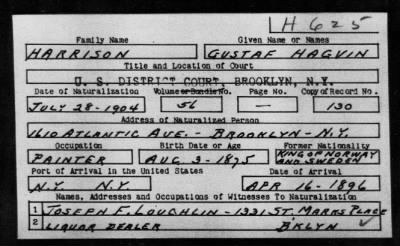 LH 625
Family Name Given Name or Names
HARRISON GUSTAF HAGVIN
Title and Location of Court
U. S. DISTRICT COURT, BROOKLYN, N.Y.
Date of Naturalization Volume or Bundle No. Page No. Copy of Record No.
JULY 28-1904 56 — 130
Address of Naturalized Person
1610 ATLANTIC AVE. - BROOKLYN - N.Y.
Occupation Birth Date or Age Former Nationality
PAINTER AUG 3-1875 KING OF NORWAY AND SWEDEN
Port of Arrival in the United States Date of Arrival
N.Y. N.Y. APR 16-1896
Names, Addresses and Occupations of Witnesses To Naturalization
1 JOSEPH F. LOUGHLIN - 1331 ST. MARKS PLACE
2 LIQUOR DEALER B'KLYN